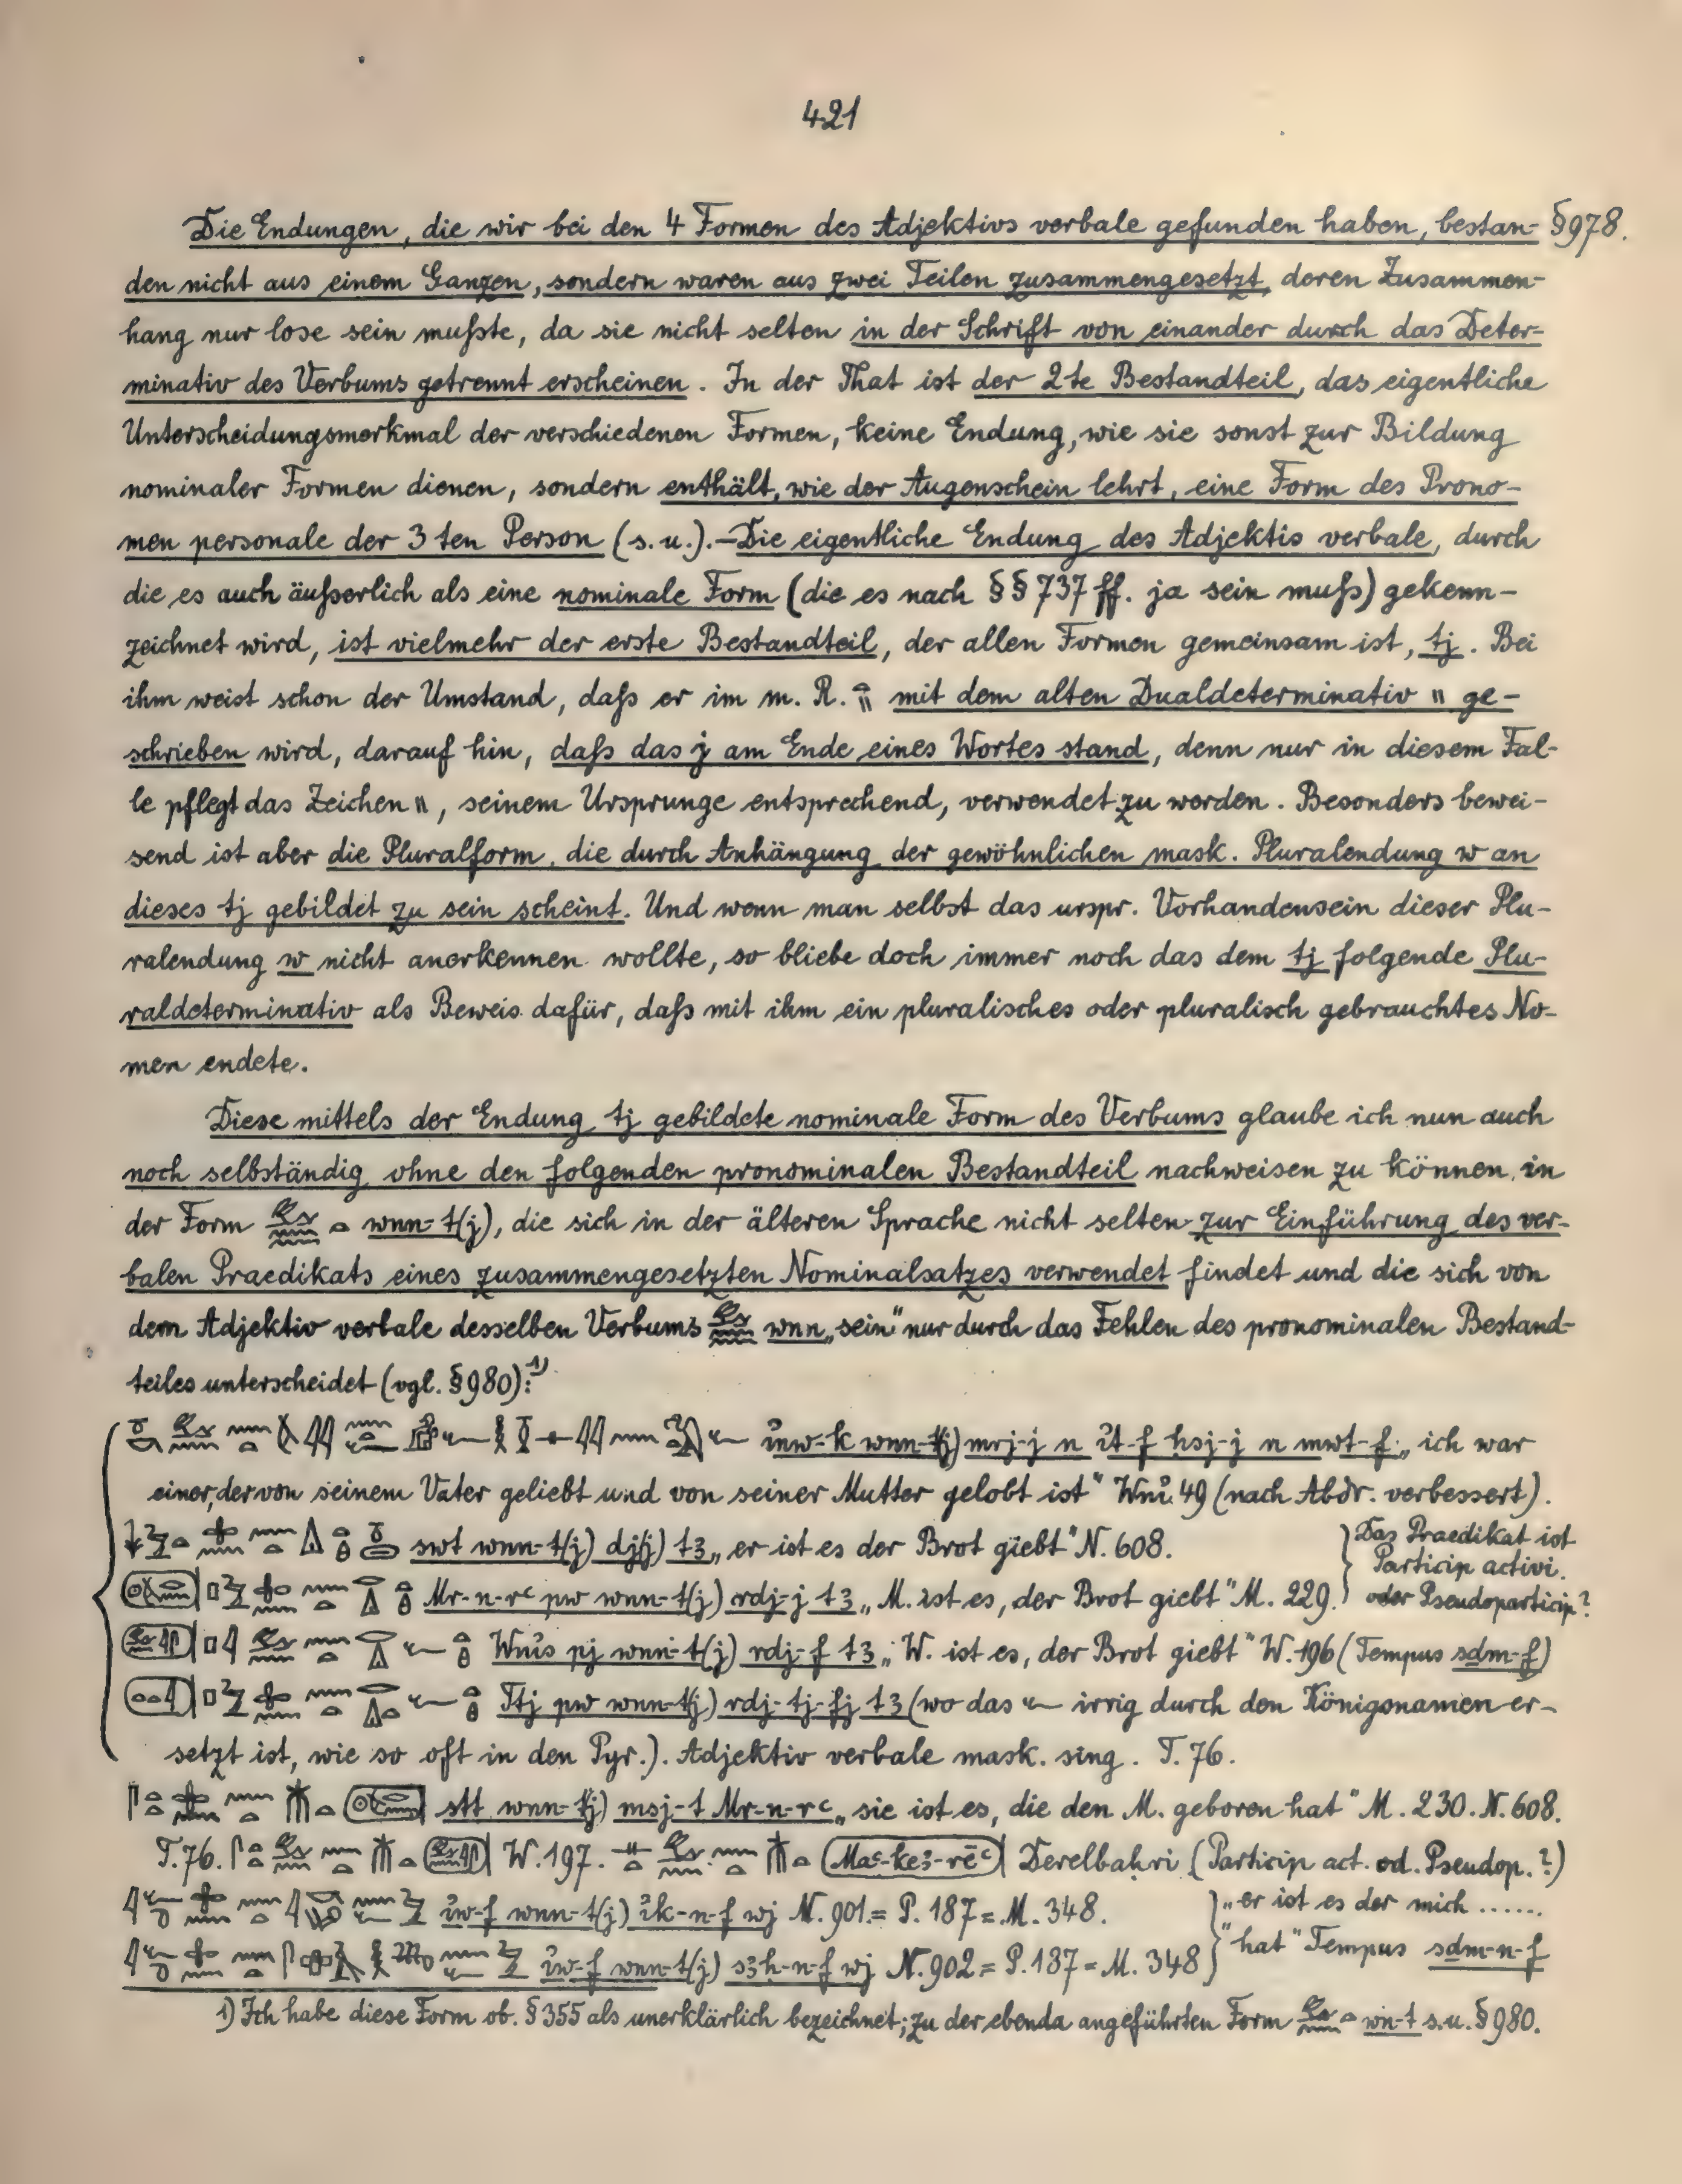 421
Die Endungen, die wir bei den 4 Formen des Adjektivs verbale gefunden haben, bestan- § 978.
den nicht aus einem Ganzen, sondern waren aus zwei Teilen zusammengesetzt, deren Zusammen-
hang nur lose sein mußte, da sie nicht selten in der Schrift von einander durch das Deter-
minativ des Verbums getrennt erscheinen. In der That ist der 2te Bestandteil, das eigentliche
Unterscheidungsmerkmal der verschiedenen Formen, keine Endung, wie sie sonst zur Bildung
nominaler Formen dienen, sondern enthält, wie der Augenschein lehrt, eine Form des Prono-
men personale der 3ten Person (s. u.).–Die eigentliche Endung des Adjektis verbale, durch
die es auch äußerlich als eine nominale Form (die es nach §§ 737 ff. ja sein muß) gekenn-
zeichnet wird, ist vielmehr der erste Bestandteil, der allen Formen gemeinsam ist, tj. Bei
ihm weist schon der Umstand, daß er im m. R. 𓏏𓏭 mit dem alten Dualdeterminativ \\ ge-
schrieben wird, darauf hin, daß das j am Ende eines Wortes stand, denn nur in diesem Fal-
le pflegt das Zeichen \\, seinem Ursprunge entsprechend, verwendet zu werden. Besonders bewei-
send ist aber die Pluralform, die durch Anhängung der gewöhnlichen mask. Pluralendung w an
dieses tj gebildet zu sein scheint. Und wenn man selbst das urspr. Vorhandensein dieser Plu-
ralendung w nicht anerkennen wollte, so bliebe doch immer noch das dem tj folgende Plu-
raldeterminativ als Beweis dafür, daß mit ihm ein pluralisches oder pluralisch gebrauchtes No-
men endete.
Diese mittels der Endung tj gebildete nominale Form des Verbums glaube ich nun auch
noch selbständig ohne den folgenden pronominalen Bestandteil nachweisen zu können, in
der Form wnn-t(j), die sich in der älteren Sprache nicht selten zur Einführung des ver-
balen Praedikats eines zusammengesetzten Nominalsatzes verwendet findet und die sich von
dem Adjektiv verbale desselben Verbums wnn „sein" nur durch das Fehlen des pronominalen Bestand-
teiles unterscheidet (vgl. § 980):1)
ỉnw-k wnn-t(j) mrj-j n ỉt-f ḥsj-j n mwt-f „ich war
einer, der von seinem Vater geliebt und von seiner Mutter gelobt ist" Wnỉ. 49 (nach Abdr. verbessert).
swt wnn-t(j) dj(j) t3 „er ist es der Brot giebt" N. 608. Das Praedikat ist
Particip activi.
Mr-n-rc pw wnn-t(j) rdj-j t3 „M. ist es, der Brot giebt" M. 229. oder Pseudoparticip?
Wnỉs pj wnn-t(j) rdj-f t3 „W. ist es, der Brot giebt" W. 196 (Tempus sdm-f)
Ttj pw wnn-t(j) rdj-tj-fj t3 (wo das 𓆑 irrig durch den Königsnamen er-
setzt ist, wie so oft in den Pyr.). Adjektiv verbale mask. sing. T. 76.
stt wnn-t(j) msj-t Mr-n-rc „sie ist es, die den M. geboren hat" M. 230. N. 608.
T. 76. W. 197. Mac-ke3-rēc Derelbahri (Particip act. od. Pseudop.?)
ỉw-f wnn-t(j) ỉk-n-f wj N. 901.= P. 187 = M. 348. „er ist es der mich ......
ỉw-f wnn-t(j) s3h-n-f wj N. 902 = P. 187 = M. 348 hat" Tempus sdm-n-f
1) Ich habe diese Form ob. § 355 als unerklärlich bezeichnet; zu der ebenda angeführten Form wn-t s. u. § 980.